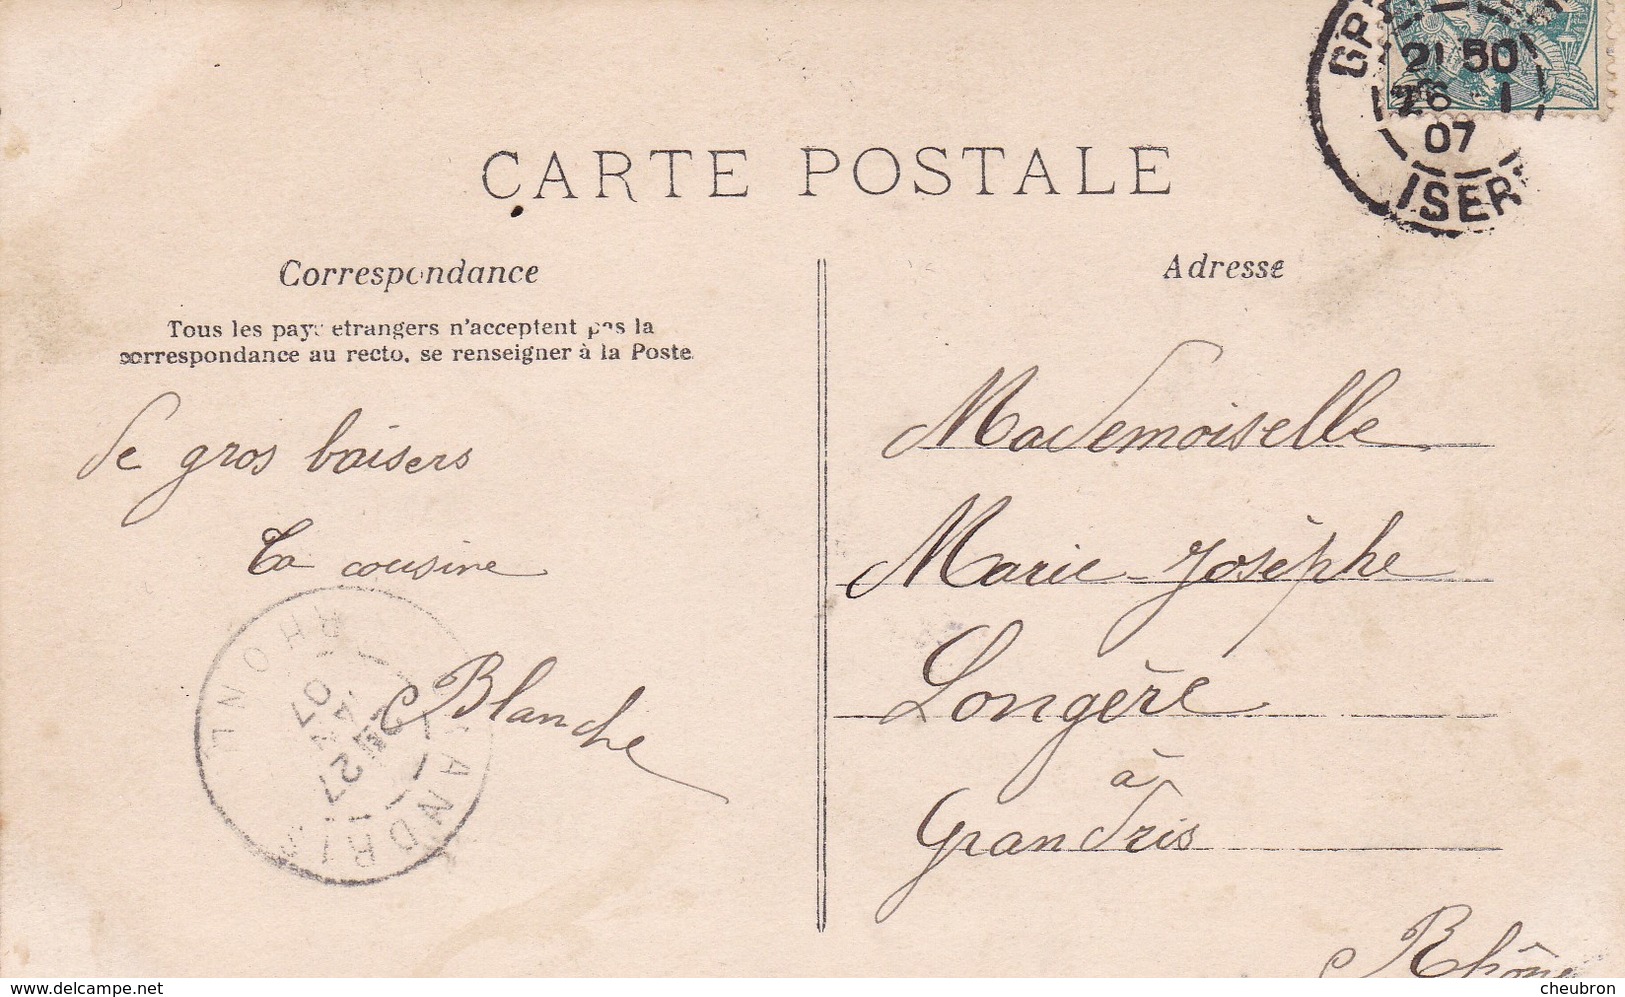 CARTE POSTALE
Correspondance
Tous les pays etrangers n'acceptent pas la
correspondance au recto, se renseigner à la Poste
De gros baisers
Ta cousine
Blanche
Adresse
Mademoiselle
Marie-Josèphe
Longère
à
Grandris
Rhône
21 50
26 1
07
ISERE
RHONE
27
07
GRANDRIS
delcampe.net
cheubron